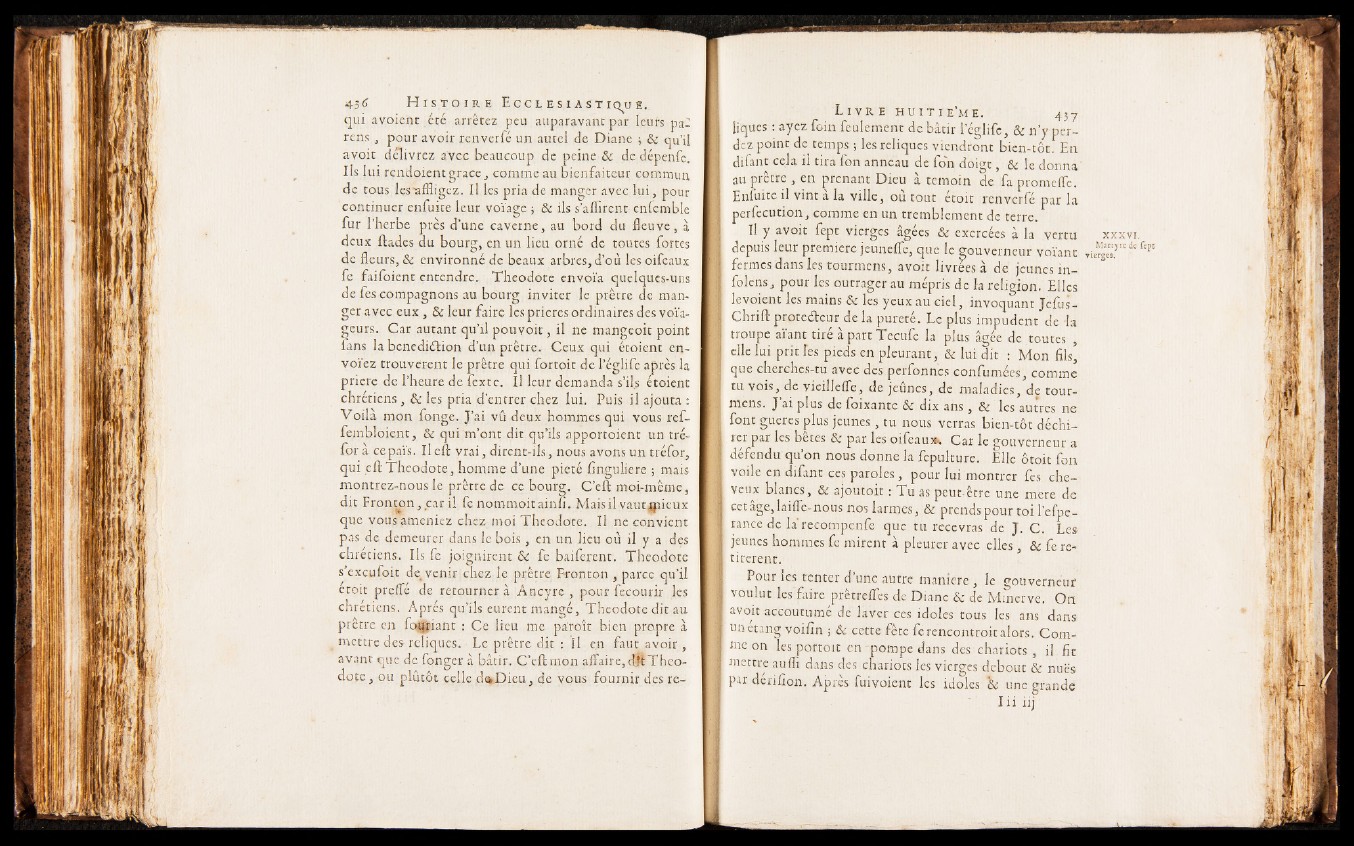 436 HISTOIRE ECCLESIASTIQUE.
qui avoient été arrêtez peu auparavant par leurs pa-
rens, pour avoir renverſé un autel de Diane ; & qu'il
avoit délivrez avec beaucoup de peine & de dépenſe.
Ils lui rendoient grace, comme au bienfaiteur commun
de tous les affligez. Il les pria de manger avec lui, pour
continuer enſuite leur voïage ; & ils s'aſſirent enſemble
ſur l'herbe près d'une caverne, au bord du fleuve, à
deux ſtades du bourg, en un lieu orné de toutes ſortes
de fleurs, & environné de beaux arbres, d'où les oiſeaux
ſe faiſoient entendre. Theodote envoïa quelques-uns
de ſes compagnons au bourg inviter le prêtre de man-
ger avec eux, & leur faire les prieres ordinaires des voïa-
geurs. Car autant qu'il pouvoit, il ne mangeoit point
ſans la benediction d'un prêtre. Ceux qui étoient en-
voïez trouverent le prêtre qui ſortoit de l'égliſe après la
priere de l'heure de ſexte. Il leur demanda s'ils étoient
chrétiens, & les pria d'entrer chez lui. Puis il ajouta :
Voilà mon ſonge. J'ai vû deux hommes qui vous reſ-
ſembloient, & qui m'ont dit qu'ils apportoient un tré-
ſor à ce païs. Il eſt vrai, dirent-ils, nous avons un tréſor,
qui eſt Theodote, homme d'une pieté ſinguliere ; mais
montrez-nous le prêtre de ce bourg. C'eſt moi-même,
dit Fronton, car il ſe nommoit ainſi. Mais il vaut mieux
que vous ameniez chez moi Theodote. Il ne convient
pas de demeurer dans le bois, en un lieu où il y a des
chrétiens. Ils ſe joignirent & ſe baiſerent. Theodote
s'excuſoit de venir chez le prêtre Fronton, parce qu'il
étoit preſſé de retourner à Ancyre, pour ſecourir les
chrétiens. Aprés qu'ils eurent mangé, Theodote dit au
prêtre en ſouriant : Ce lieu me paroît bien propre à
mettre des reliques. Le prêtre dit : Il en faut avoir,
avant que de ſonger à bâtir. C'eſt mon affaire, dit Theo-
dote, ou plûtôt celle de Dieu, de vous fournir des re-
LIVRE HUITIE'ME. 437
liques : ayez ſoin ſeulement de bâtir l'égliſe, & n'y per-
dez point de temps ; les reliques viendront bien-tôt. En
diſant cela il tira ſon anneau de ſon doigt, & le donna
au prêtre, en prenant Dieu à temoin de ſa promeſſe.
Enſuite il vint à la ville, où tout étoit renverſé par la
perſecution, comme en un tremblement de terre.
Il y avoit ſept vierges âgées & exercées à la vertu
depuis leur premiere jeuneſſe, que le gouverneur voïant
fermes dans les tourmens, avoit livrées à de jeunes in-
ſolens, pour les outrager au mépris de la religion. Elles
levoient les mains & les yeux au ciel, invoquant Jeſus-
Chriſt protecteur de la pureté. Le plus impudent de la
troupe aïant tiré à part Tecuſe la plus âgée de toutes,
elle lui prit les pieds en pleurant, & lui dit : Mon fils,
que cherches-tu avec des perſonnes conſumées, comme
tu vois, de vieilleſſe, de jeûnes, de maladies, de tour-
mens. J'ai plus de ſoixante & dix ans, & les autres ne
ſont gueres plus jeunes, tu nous verras bien-tôt déchi-
rer par les bêtes & par les oiſeaux. Car le gouverneur a
défendu qu'on nous donne la ſepulture. Elle ôtoit ſon
voile en diſant ces paroles, pour lui montrer ſes che-
veux blancs, & ajoutoit : Tu as peut-être une mere de
cet âge, laiſſe-nous nos larmes, & prends pour toi l'eſpe-
rance de la recompenſe que tu recevras de J. C. Les
jeunes hommes ſe mirent à pleurer avec elles, & ſe re-
tirerent.
Pour les tenter d'une autre maniere, le gouverneur
voulut les faire prêtreſſes de Diane & de Minerve. On
avoit accoutumé de laver ces idoles tous les ans dans
un étang voiſin ; & cette fête ſe rencontroit alors. Com-
me on les portoit en pompe dans des chariots, il fit
mettre auſſi dans des chariots les vierges debout & nuës
par dériſion. Après ſuivoient les idoles & une grande
Iii iij
XXXVI.
Martyre de ſept
vierges.